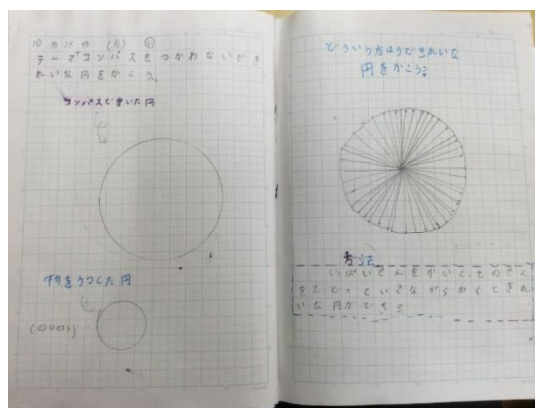 10月25日(月)
テーマコンパスをつかわないでき
れいな円をかこう。
コンパスで書いた円
をうつした円
(のりのふた)
どういう方ほうできれいな
円をかこう?
方法
いっぱいせんをかいて、そのせん
をたどっていきながらかくときれ
いな円ができる